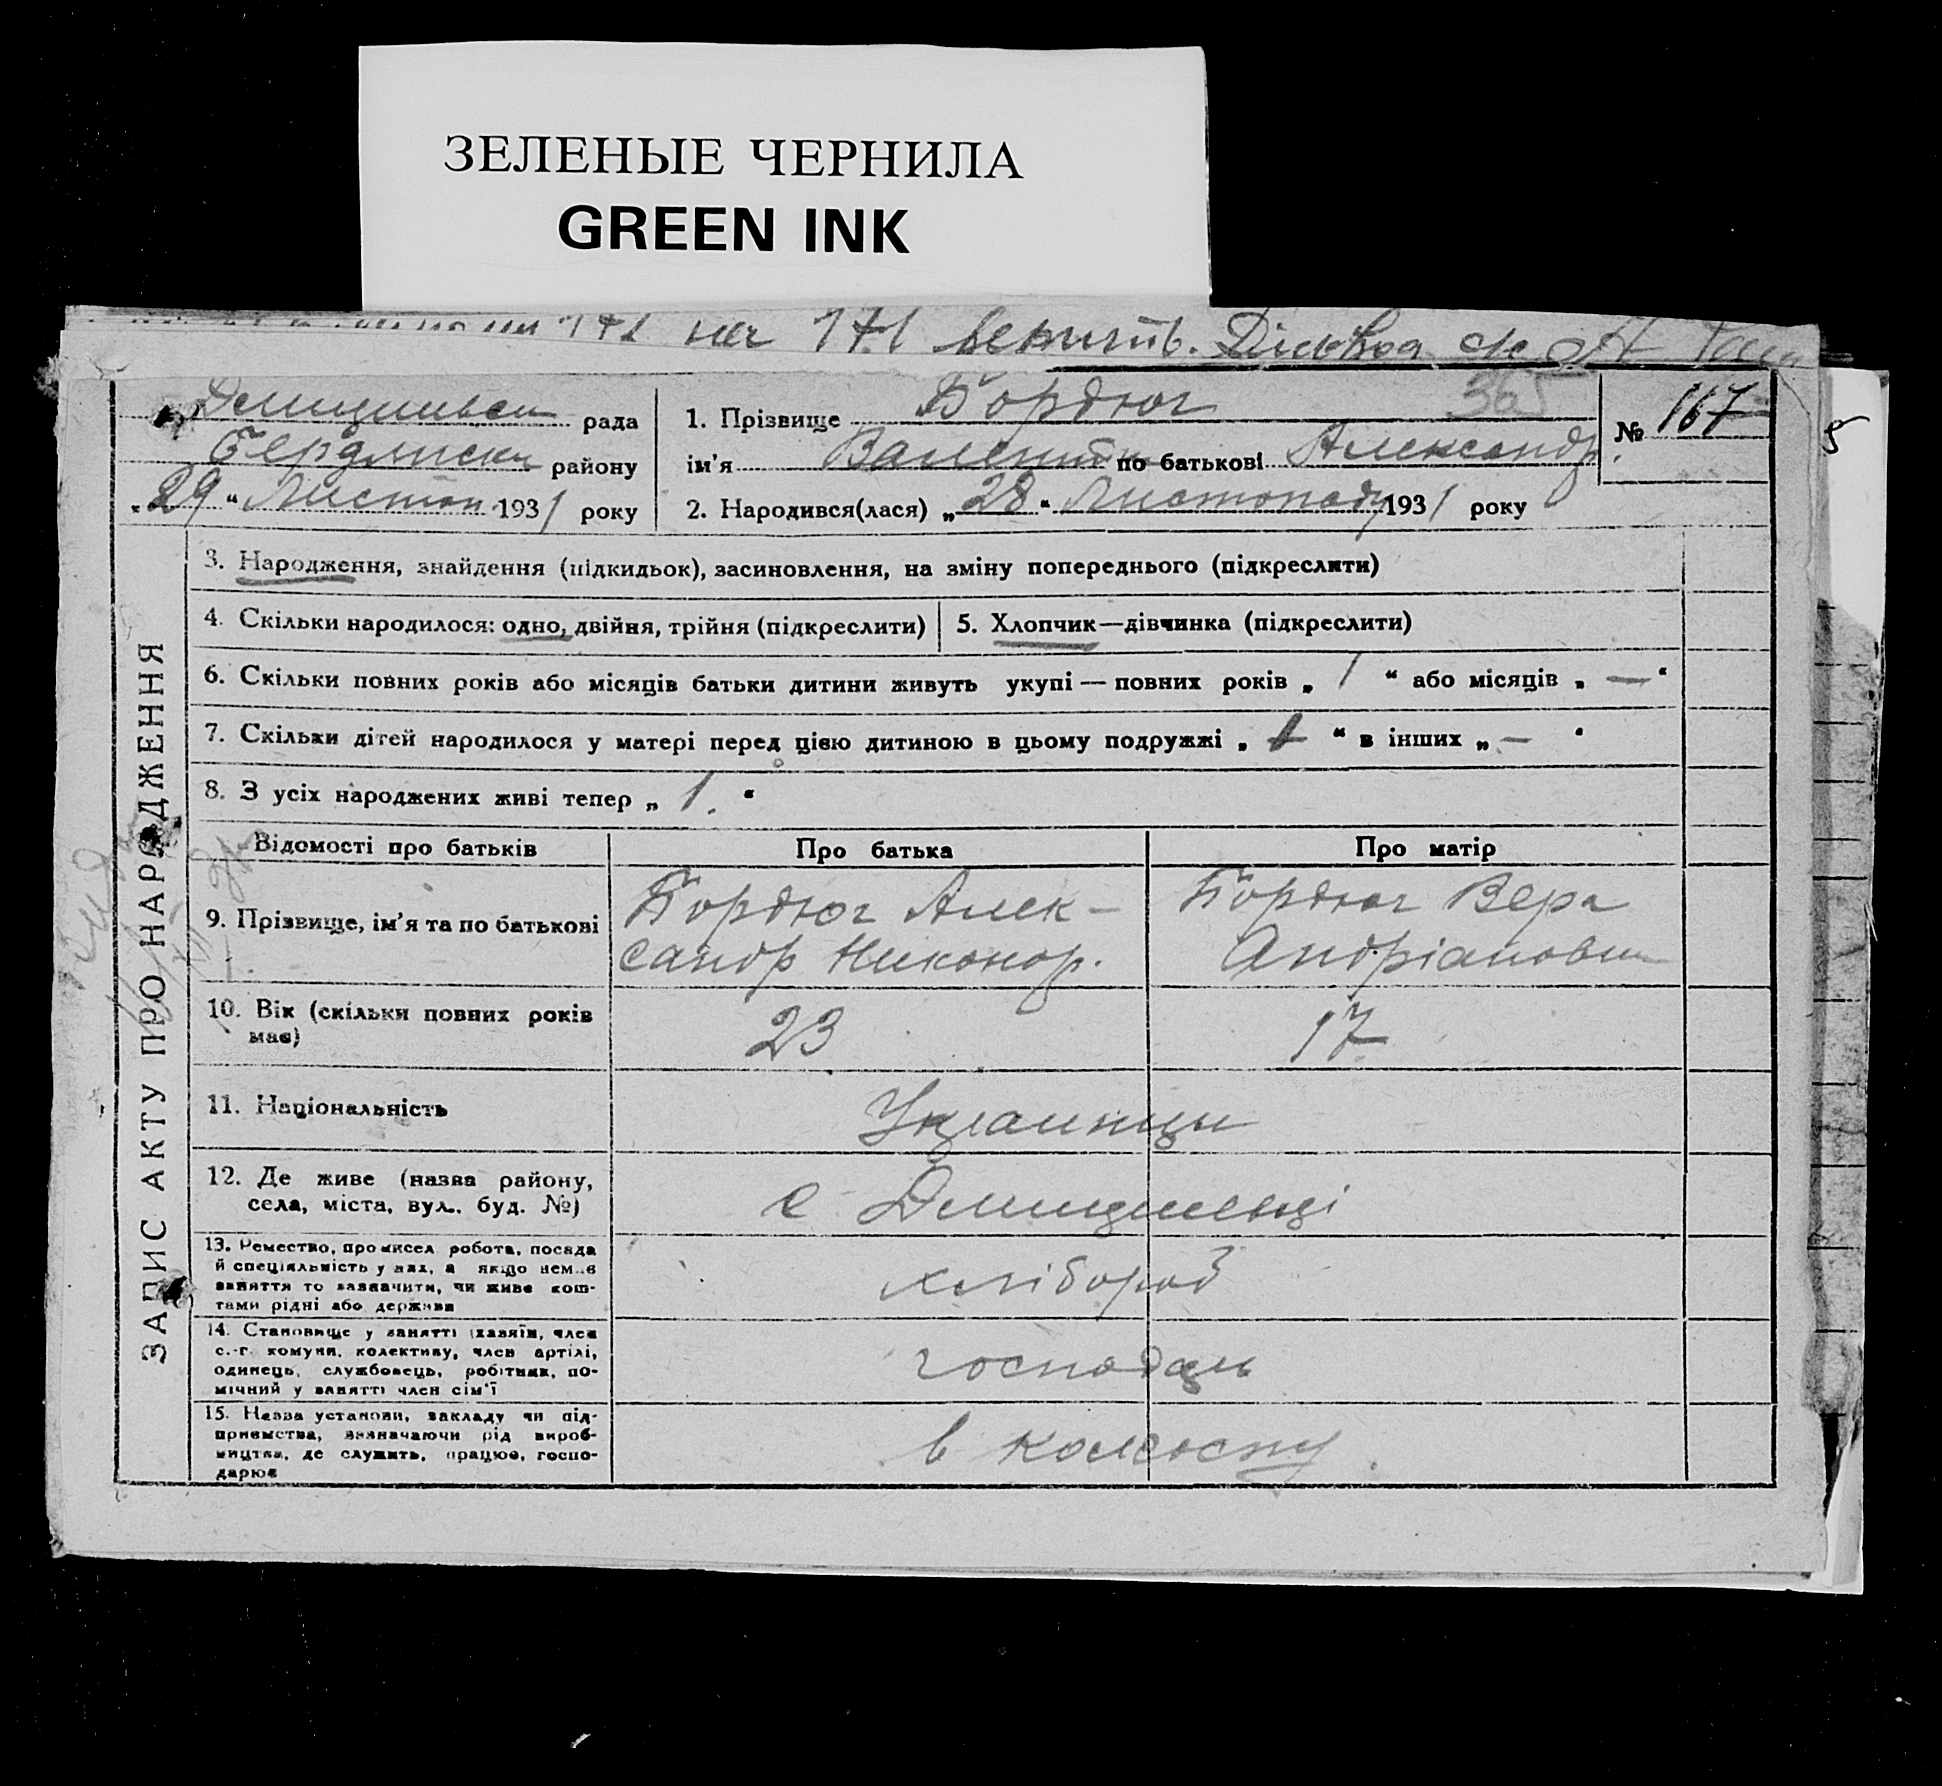 ЗЕЛЕНЫЕ ЧЕРНИЛА
GREEN INK
171 на 171
рада
району
"29" Листоп. 1931 року
1. Прізвище Бордюг
365
ім'я Валентин по батькові Александр.
2. Народився(лася) „28" Листопаду 1931 року
№ 167
5
ЗАПИС АКТУ ПРО НАРОДЖЕННЯ
3. Народження, знайдення (підкидьок), засиновлення, на зміну попереднього (підкреслити)
4. Скільки народилося: одно, двійня, трійня (підкреслити)
5. Хлопчик—дівчинка (підкреслити)
6. Скільки повних років або місяців батьки дитини живуть укупі — повних років „ 1 " або місяців „ — "
7. Скільки дітей народилося у матері перед цією дитиною в цьому подружжі „ 1 " в інших „ — "
8. З усіх народжених живі тепер „ 1. "
Відомості про батьків
Про батька
Про матір
9. Прізвище, ім'я та по батькові
Бордюг Алек-
сандр Никонор.
Бордюг Вера
Андріановна
10. Вік (скільки повних років
має)
23
17
11. Національність
Українци
12. Де живе (назва району,
села, міста, вул., буд. №)
с
13. Ремество, промисел робота, посада
й спеціяльність у них, а якщо немає
заняття то зазначити, чи живе кош-
тами рідні або держави
хлібороб
14. Становище у занятті (хазяїн, член
с.-г. комуни, колективу, член артілі,
одинець, службовець, робітник, по-
мічний у занятті член сім'ї
господарь
15. Назва установи, закладу чи під-
приємства, зазначаючи рід вироб-
ництва, де служить, працює, госпо-
дарює
в колгоспу.